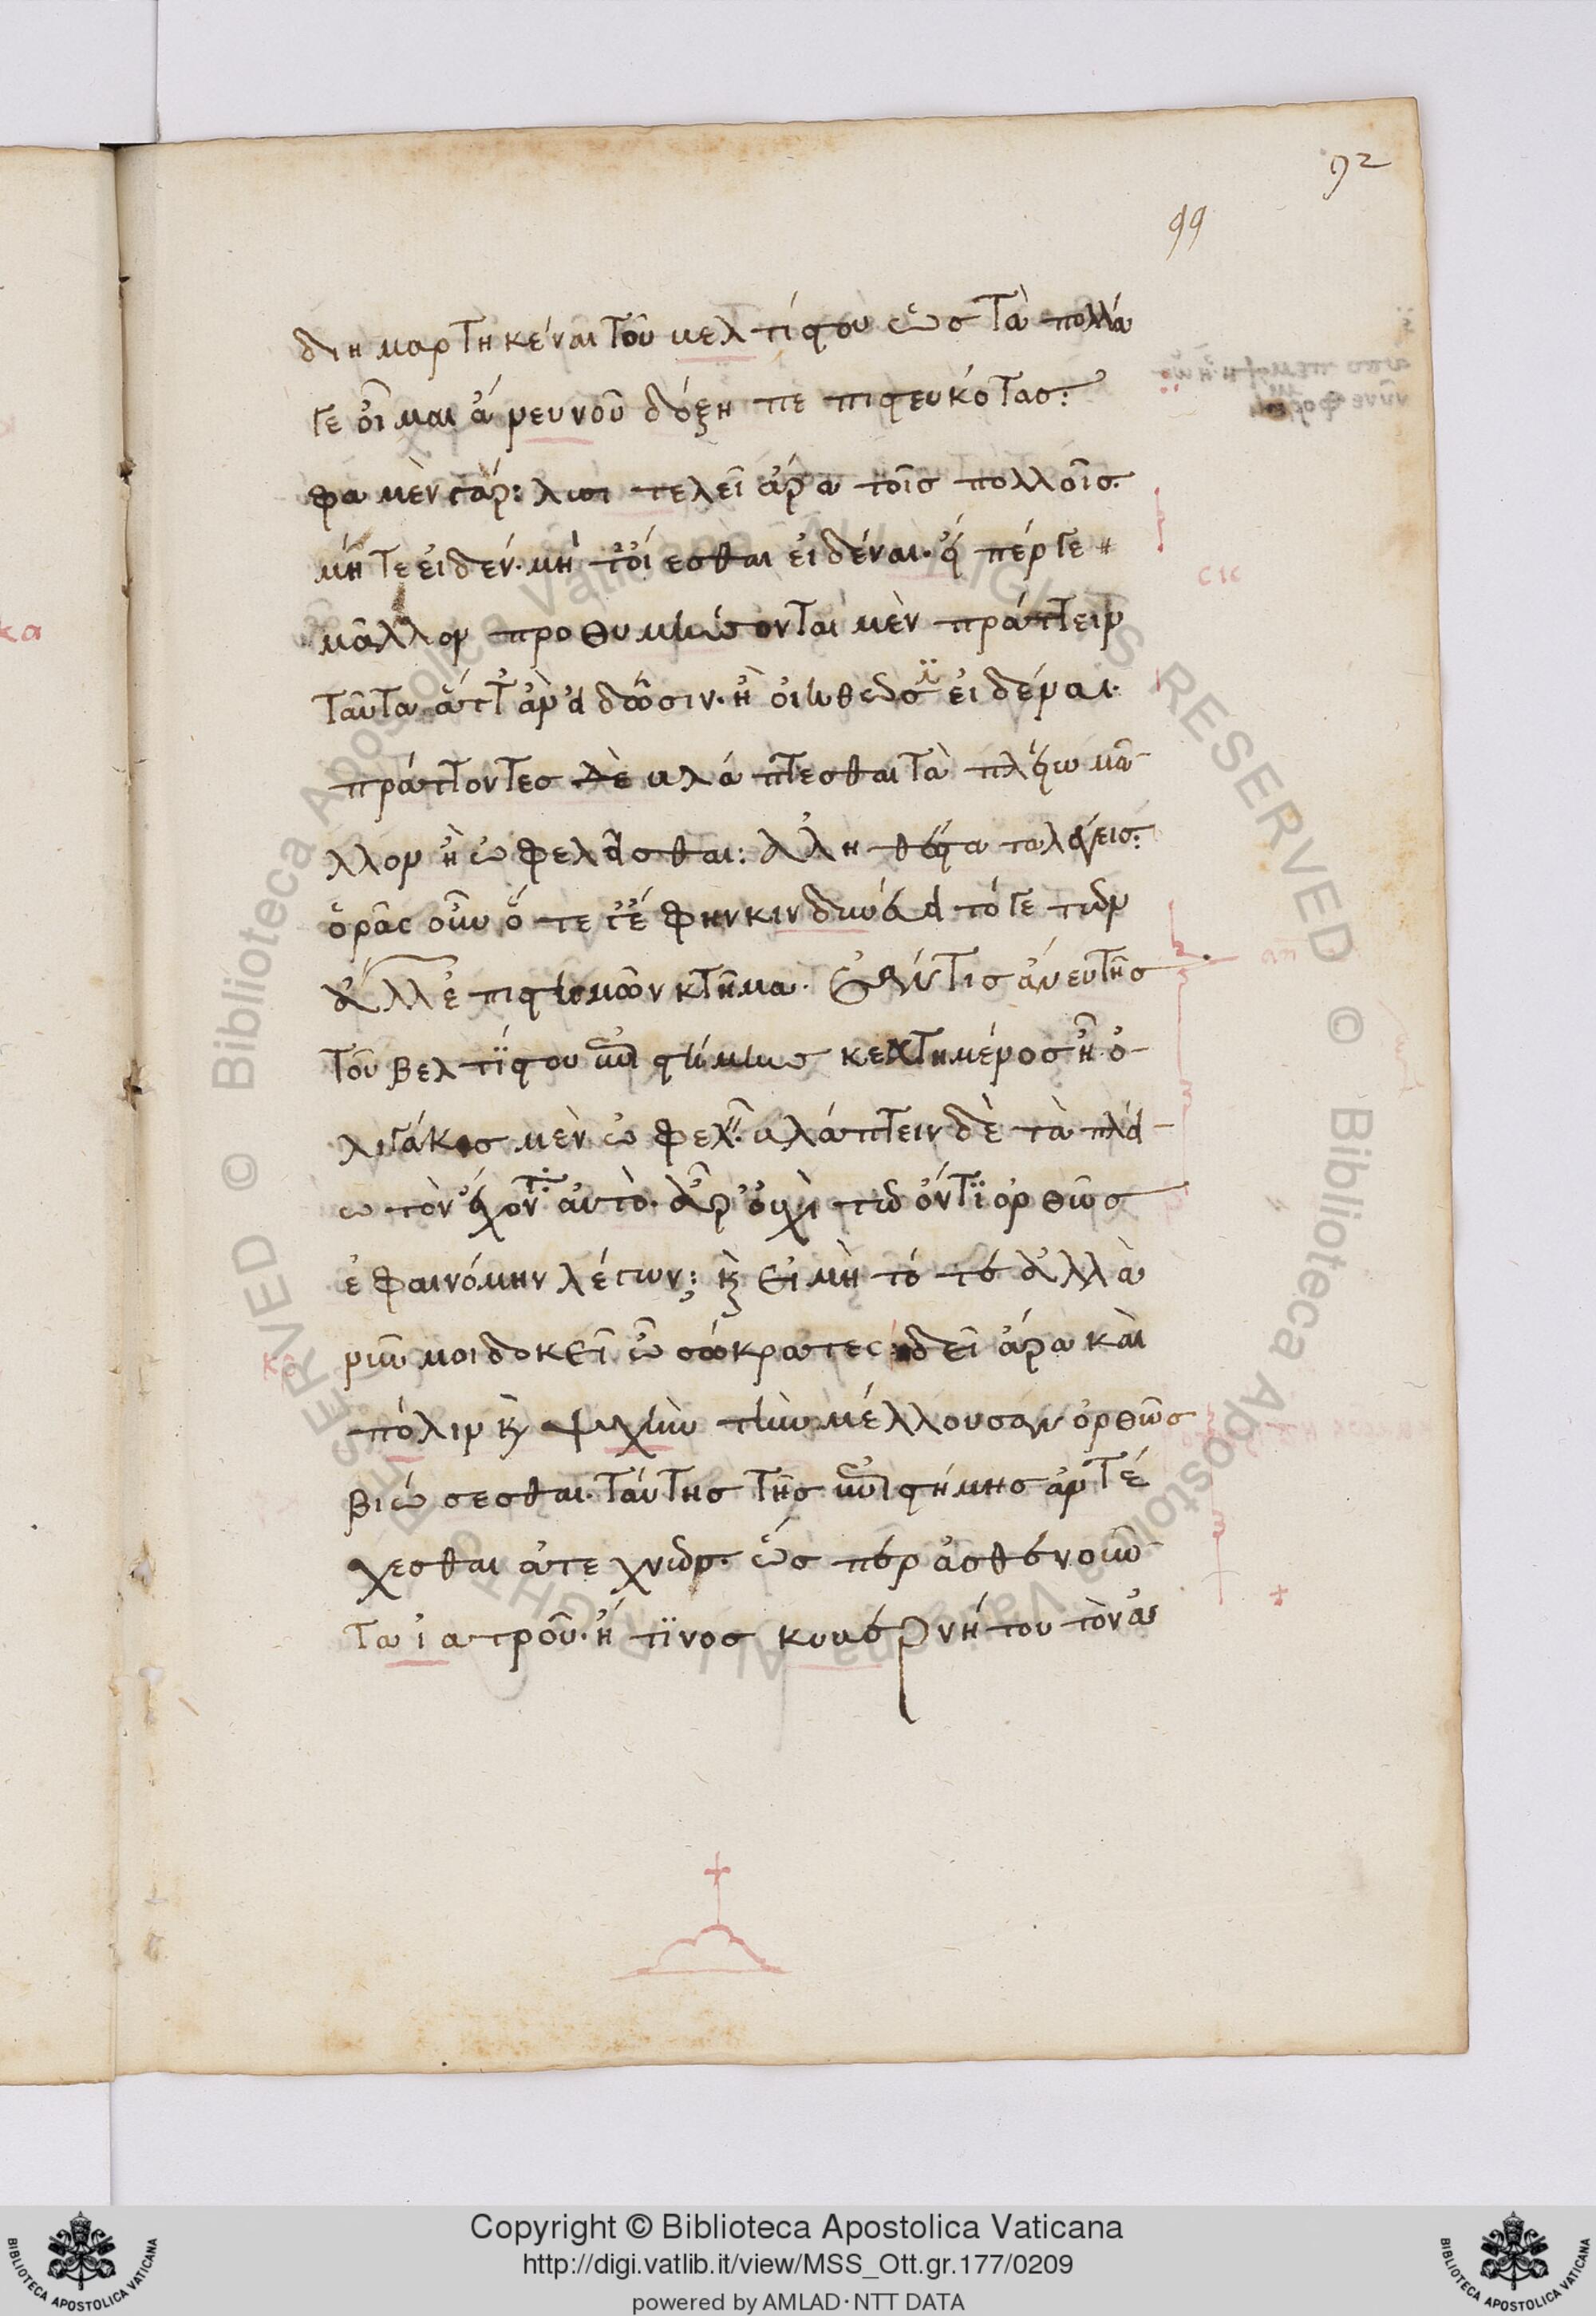 92
99
διημαρτηκέναι τοῦ βελτίστου ὡς τὰ πολλά
γε οἶμαι ἄνευ νοῦ δόξῃ πεπιστευκότας:
φαμὲν γάρ: λυσιτελεῖ ἄρα τοῖς πολλοῖς.
μήτε εἰδέν. μήτ' οἴεσθαι εἰδέναι. εἴπέρ γε
μᾶλλον προθυμήσονται μὲν πράττειν
ταῦτα ἅττ' ἂν εἰδῶσιν. ἢ οἰηθῶσιν εἰδέναι.
πράττοντες δὲ βλάπτεσθαι τὰ πλείω μᾶ
λλον ἢ ὠφελεῖσθαι: ἀληθέστατα λέγεις:
ὁρᾶς οὖν ὅτε γ' ἔφην κινδυνεύει τό γε τῶν
ἄλλ' ἐπιστημῶν κτῆμα. ἐάν τις ἄνευ τῆς
τοῦ βελτίστου ἐπιστήμης κεκτημένος ἦ. ὀ
λιγάκις μὲν ὠφελ. βλάπτειν δὲ τὰ πλεί
ω τὸν ἔχοντ αὐτό. ἆρ' οὐχὶ τῶ ὄντι ὀρθῶς
ἐφαινόμην λέγων; κ εἰ μὴ τότε ἀλλὰ
νῦν μοι δοκεῖ ὦ σώκρατες: δεῖ ἄρα καὶ
πόλιν κ ψυχὴν τὴν μέλλουσαν ὀρθῶς
βιώσεσθαι. ταύτης τῆς ἐπιστήμης ἀντέ
χεσθαι ἀτεχνῶς. ὥσπερ ἀσθενοῦν
τα ἰατροῦ. ἤ τινος κυβερνήτου τὸν ἀσ
Copyright © Biblioteca Apostolica Vaticana
http://digi.vatlib.it/view/MSS_Ott.gr.177/0209
powered by AMLAD·NTT DATA
BIBLIOTECA APOSTOLICA VATICANA
BIBLIOTECA APOSTOLICA VATICANA